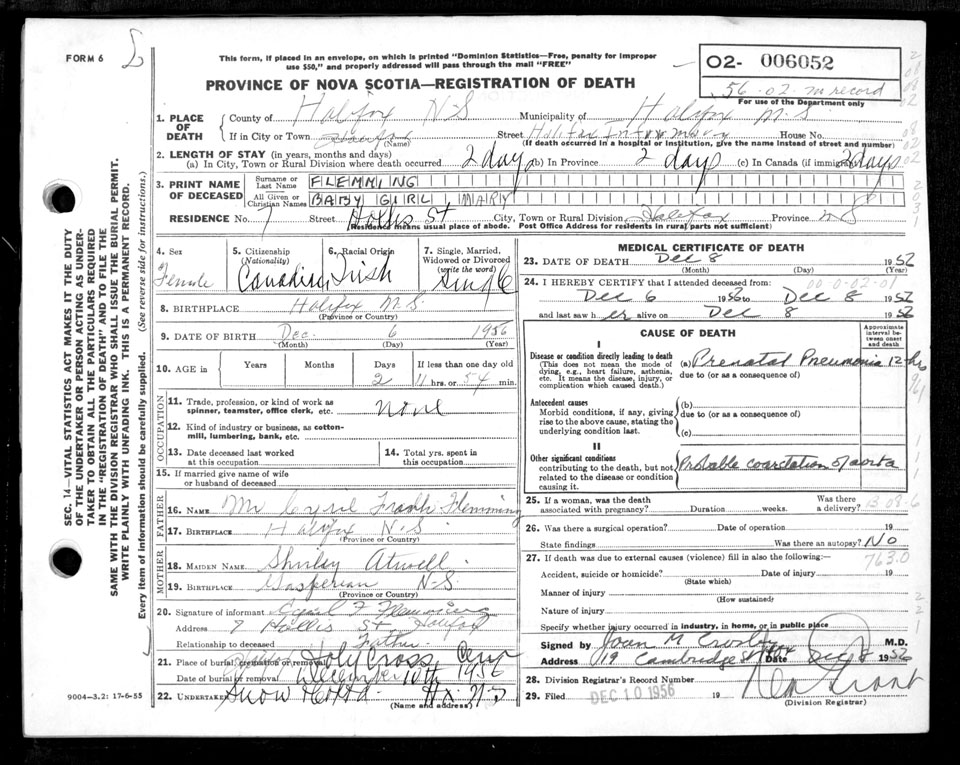 FORM 6
This form, if placed in an envelope, on which is printed "Dominion Statistics—Free, penalty for improper
use $50," and properly addressed will pass through the mail "FREE"
PROVINCE OF NOVA SCOTIA—REGISTRATION OF DEATH
O2- 006052
56-02 m record
For use of the Department only
1. PLACE OF DEATH
County of Halifax N-S Municipality of Halifax N.S
If in City or Town (Name) Street Halifax Infirmary House No.
(If death occurred in a hospital or institution, give the name instead of street and number)
2. LENGTH OF STAY (in years, months and days)
(a) In City, Town or Rural Division where death occurred 2 days (b) In Province 2 days (c) In Canada (if immigrant) 2 days
3. PRINT NAME OF DECEASED
Surname or Last Name FLEMMING
All Given or Christian Names BABY GIRL MARY
RESIDENCE No. 7 Street Hollis St City, Town or Rural Division Halifax Province N S
(Residence means usual place of abode. Post Office Address for residents in rural parts not sufficient)
4. Sex Female
5. Citizenship (Nationality) Canadian
6. Racial Origin Irish
7. Single, Married, Widowed or Divorced (write the word) Single
8. BIRTHPLACE Halifax N.S.
(Province or Country)
9. DATE OF BIRTH Dec. 6 1956
(Month) (Day) (Year)
10. AGE in Years Months Days If less than one day old
2 11 hrs. or 54 min.
OCCUPATION
11. Trade, profession, or kind of work as
spinner, teamster, office clerk, etc. None
12. Kind of industry or business, as cotton-
mill, lumbering, bank, etc.
13. Date deceased last worked
at this occupation
14. Total yrs. spent in
this occupation
15. If married give name of wife
or husband of deceased
FATHER
16. NAME Mr Cyril Frank Flemming
17. BIRTHPLACE Halifax N-S
(Province or Country)
MOTHER
18. MAIDEN NAME Shirley Atwell
19. BIRTHPLACE Gasperian N-S
(Province or Country)
20. Signature of informant Cyril F Flemming
Address 7 Hollis St. Halifax
Relationship to deceased Father
21. Place of burial, cremation or removal Holy Cross Cem
Date of burial or removal December 10th 1956
22. Undertaker Snow Hfx. N.S
(Name and address)
MEDICAL CERTIFICATE OF DEATH
23. DATE OF DEATH Dec 8 1956
(Month) (Day) (Year)
24. I HEREBY CERTIFY that I attended deceased from:
00-0-02-01
Dec 6 1956 to Dec 8 1956
and last saw her alive on Dec 8 1956
CAUSE OF DEATH
Approximate interval between onset and death
I
Disease or condition directly leading to death
(This does not mean the mode of dying, e.g., heart failure, asthenia, etc. It means the disease, injury, or complication which caused death.)
(a) Prenatal Pneumonia 12-hrs
due to (or as a consequence of)
Antecedent causes
Morbid conditions, if any, giving rise to the above cause, stating the underlying condition last.
(b)
due to (or as a consequence of)
(c)
II
Other significant conditions
contributing to the death, but not related to the disease or condition causing it.
Probable coarctation of aorta
25. If a woman, was the death
associated with pregnancy? Duration weeks. Was there a delivery?
26. Was there a surgical operation? Date of operation 19
State findings Was there an autopsy? No
763.0
27. If death was due to external causes (violence) fill in also the following:—
Accident, suicide or homicide? Date of injury 19
(State which)
Manner of injury
(How sustained)
Nature of injury
Specify whether injury occurred in industry, in home, or in public place
Signed by Joan M Crosby M.D.
Address 119 Cambridge St Hfx Date Dec 8 1956
28. Division Registrar's Record Number
29. Filed DEC 10 1956 19
(Division Registrar)
9004—3.2: 17-6-55
SEC. 14—VITAL STATISTICS ACT MAKES IT THE DUTY
OF THE UNDERTAKER OR PERSON ACTING AS UNDER-
TAKER TO OBTAIN ALL THE PARTICULARS REQUIRED
IN THE "REGISTRATION OF DEATH" AND TO FILE THE
SAME WITH THE DIVISION REGISTRAR WHO SHALL ISSUE THE BURIAL PERMIT.
WRITE PLAINLY WITH UNFADING INK. THIS IS A PERMANENT RECORD.
Every item of information should be carefully supplied. (See reverse side for instructions.)